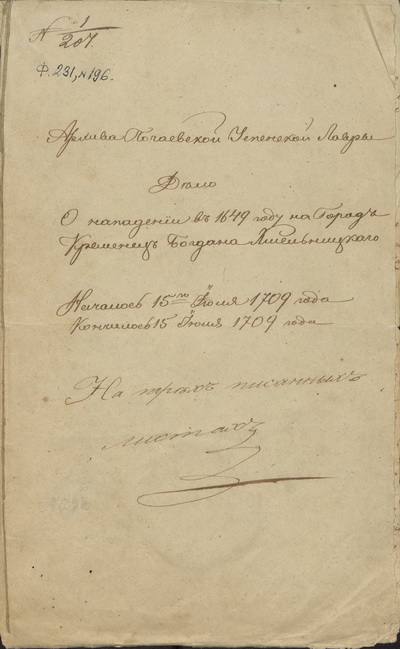 N 1/207.
Ф. 231, № 196.
Архива Почаевской Успенской Лавры
Дѣло
О нападеніи въ 1649 году на Городъ
Кременецъ Богдана Хмельницкаго
Началось 15го Іюля 1709 года
Кончилось 15 Іюля 1709 года
На трехъ писанныхъ
листахъ